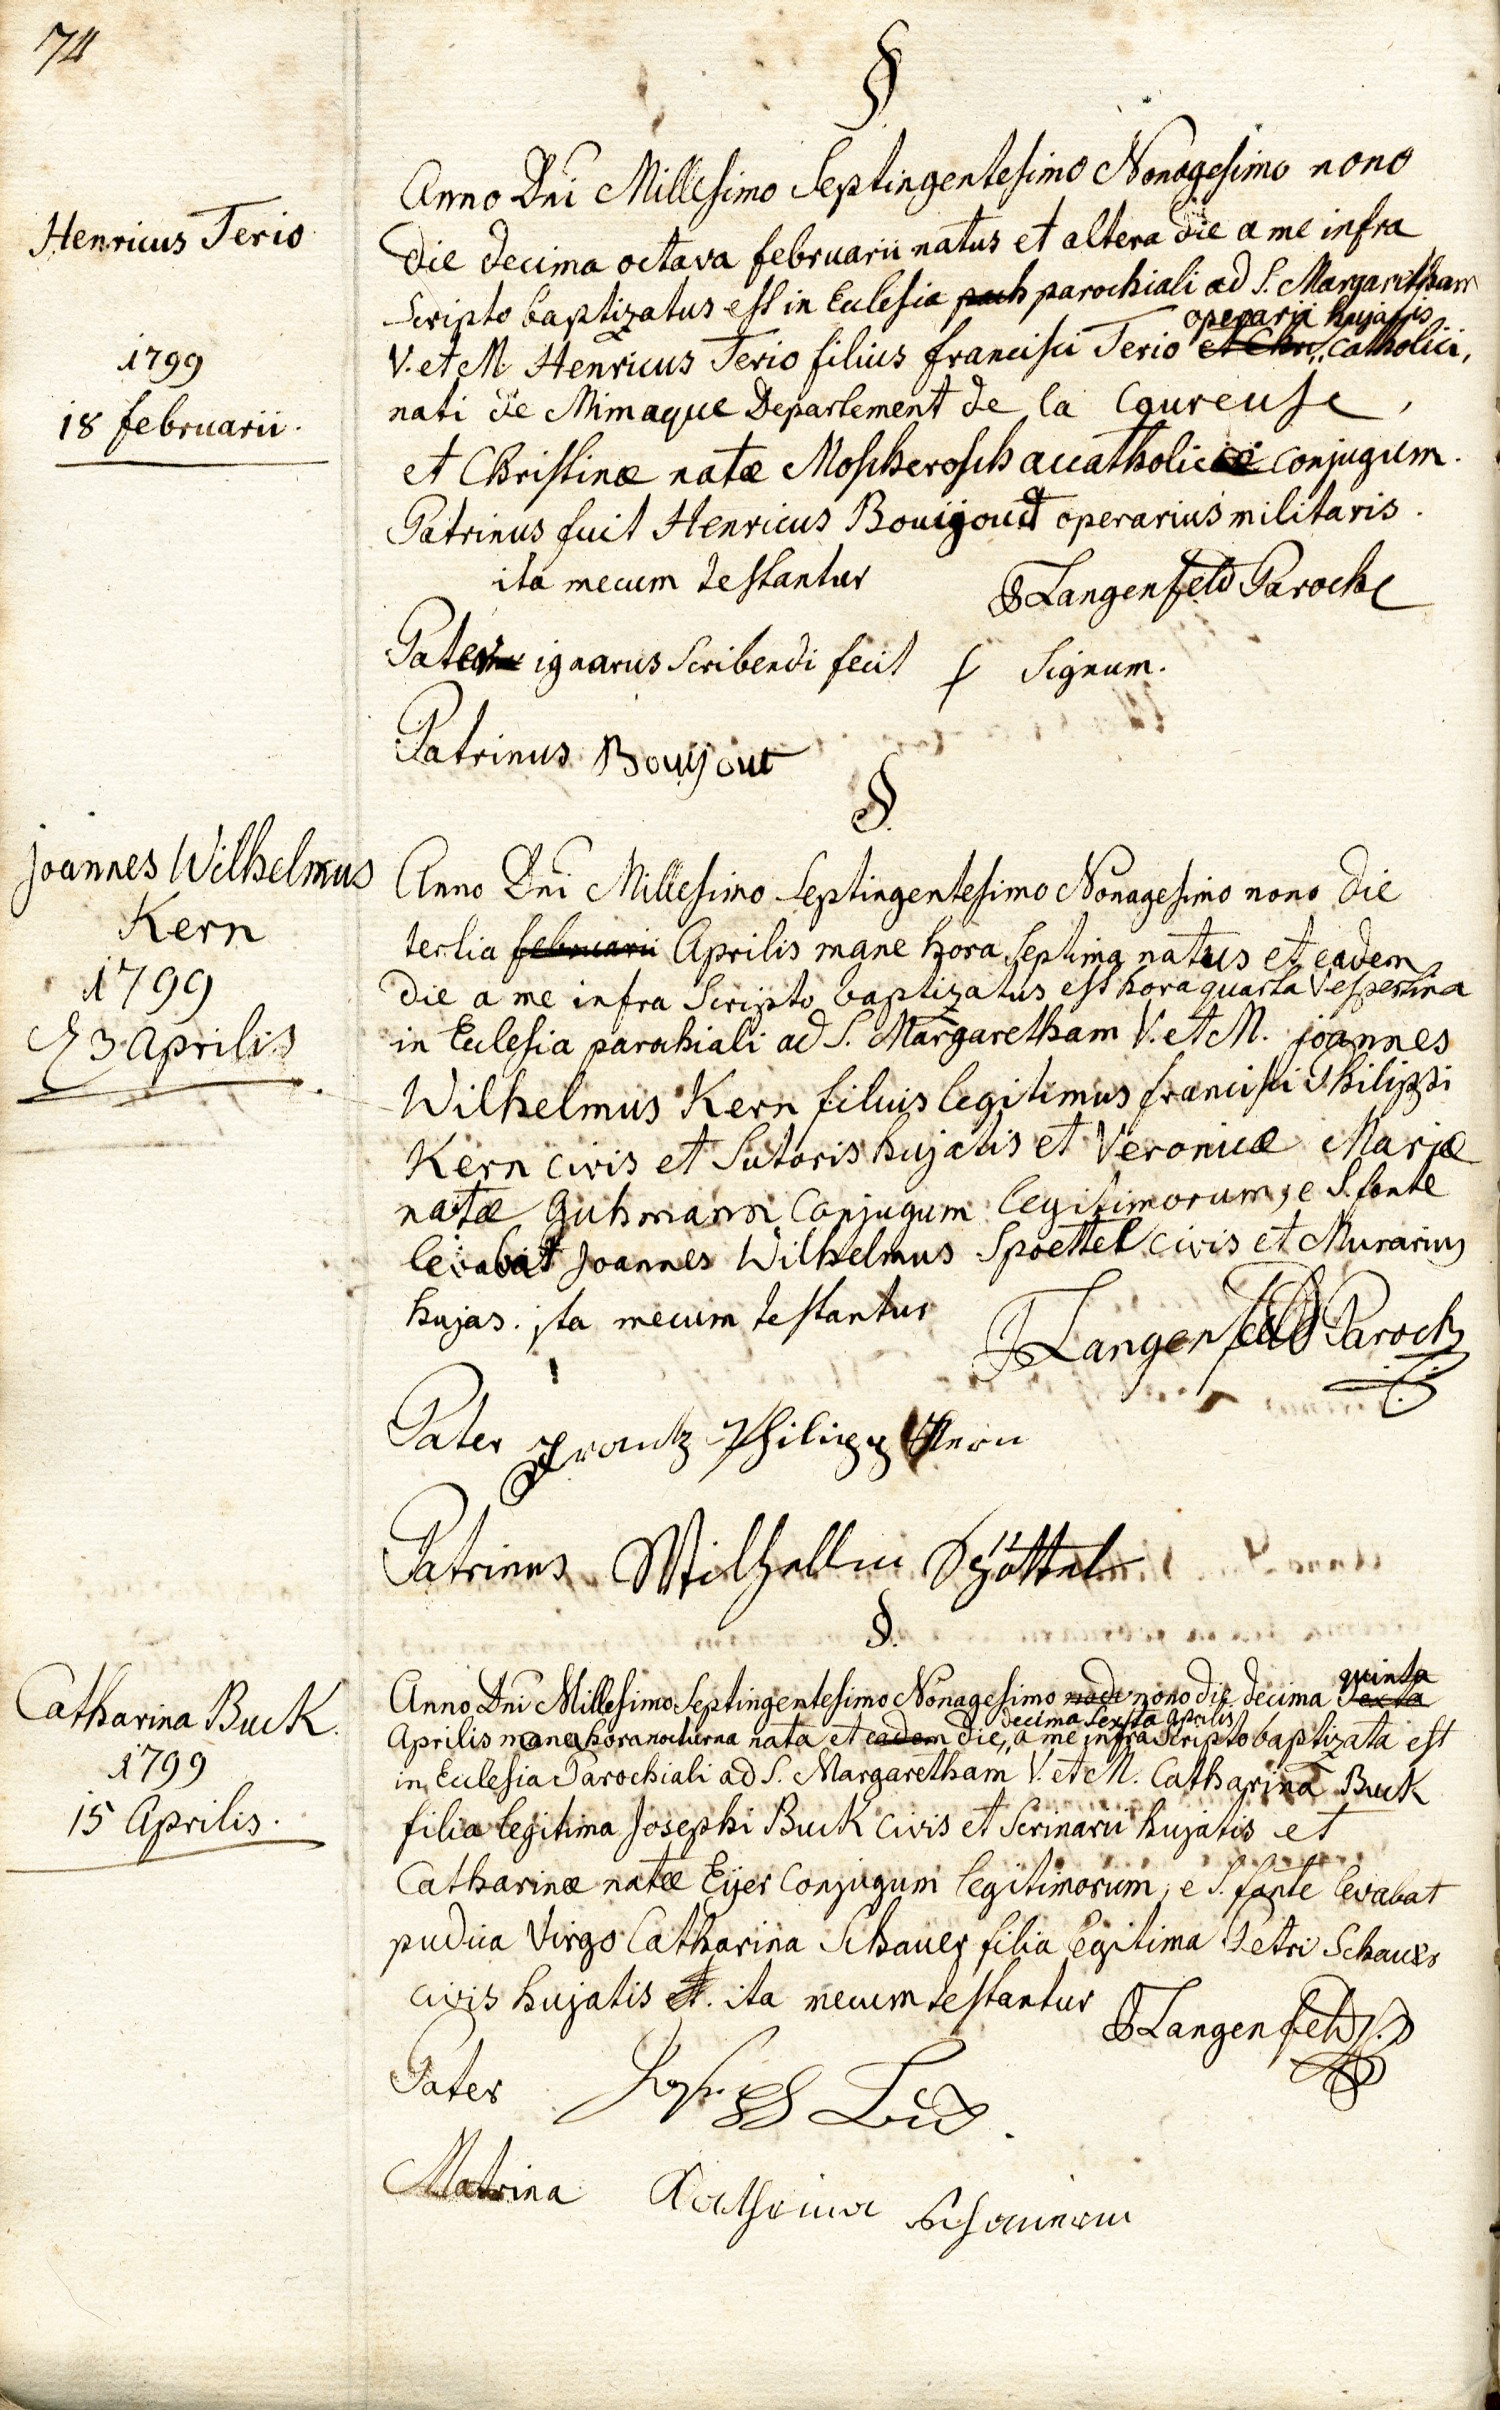 74
§
Henricus Terio
1799
18 februarii.
Anno Dni Millesimo Septingentesimo Nonagesimo nono
die decima octava februarii natus et altera die a me infra
scripto baptizatus est in Eclesia parochiali ad S. Margaritham
operarii hujatis
V. et M Henricus Terio filius francisci Terio catholici,
nati de Mimaque Departement de la Coureuse,
et Christinæ natæ Moscherosch acatholicæ conjugum.
Patrinus fuit Henricus Bouijout operarius militaris.
ita mecum testantur
Langenfeld Paroch
Pater ignarus scribendi fecit signum.
Patrinus Bouijout
§.
joannes Wilhelmus
Kern
1799
3 Aprilis
Anno Dni Millesimo Septingentesimo Nonagesimo nono die
tertia februarii Aprilis mane hora septima natus et eadem
die a me infra scripto baptizatus est hora quarta Vespertina
in Eclesia parochiali ad S. Margaretham V. et M. joannes
Wilhelmus Kern filius legitimus francisci Philippi
Kern civis et Sutoris hujatis et Veronicæ Mariæ
natæ Guhmann Conjugum legitimorum, e S. fonte
levabat Joannes Wilhelmus Spoettel civis et Murarius
hujas. ita mecum testantur
Langenfeld Paroch
Pater Frantz Philipp Kern
Patrinus Wilhellm Spöttel
§.
Catharina Buck.
1799
15 Aprilis.
quinta
Anno Dni Millesimo Septingentesimo Nonagesimo nono die decima sexta
decima sexta aprilis
Aprilis hora nocturna nata et eadem die, a me infra scripto baptizata est
in Eclesia Parochiali ad S. Margaretham V. et M. Catharina Buck
filia legitima Josephi Buck civis et Scrinarii hujatis et
Catharinæ natæ Eijer Conjugum legitimorum, e S. fonte levabat
pudica Virgo Catharina Schauer filia legitima Petri Schauer
civis hujatis. ita mecum testantur
Langenfeld
Pater Joseph
Matrina Katherina